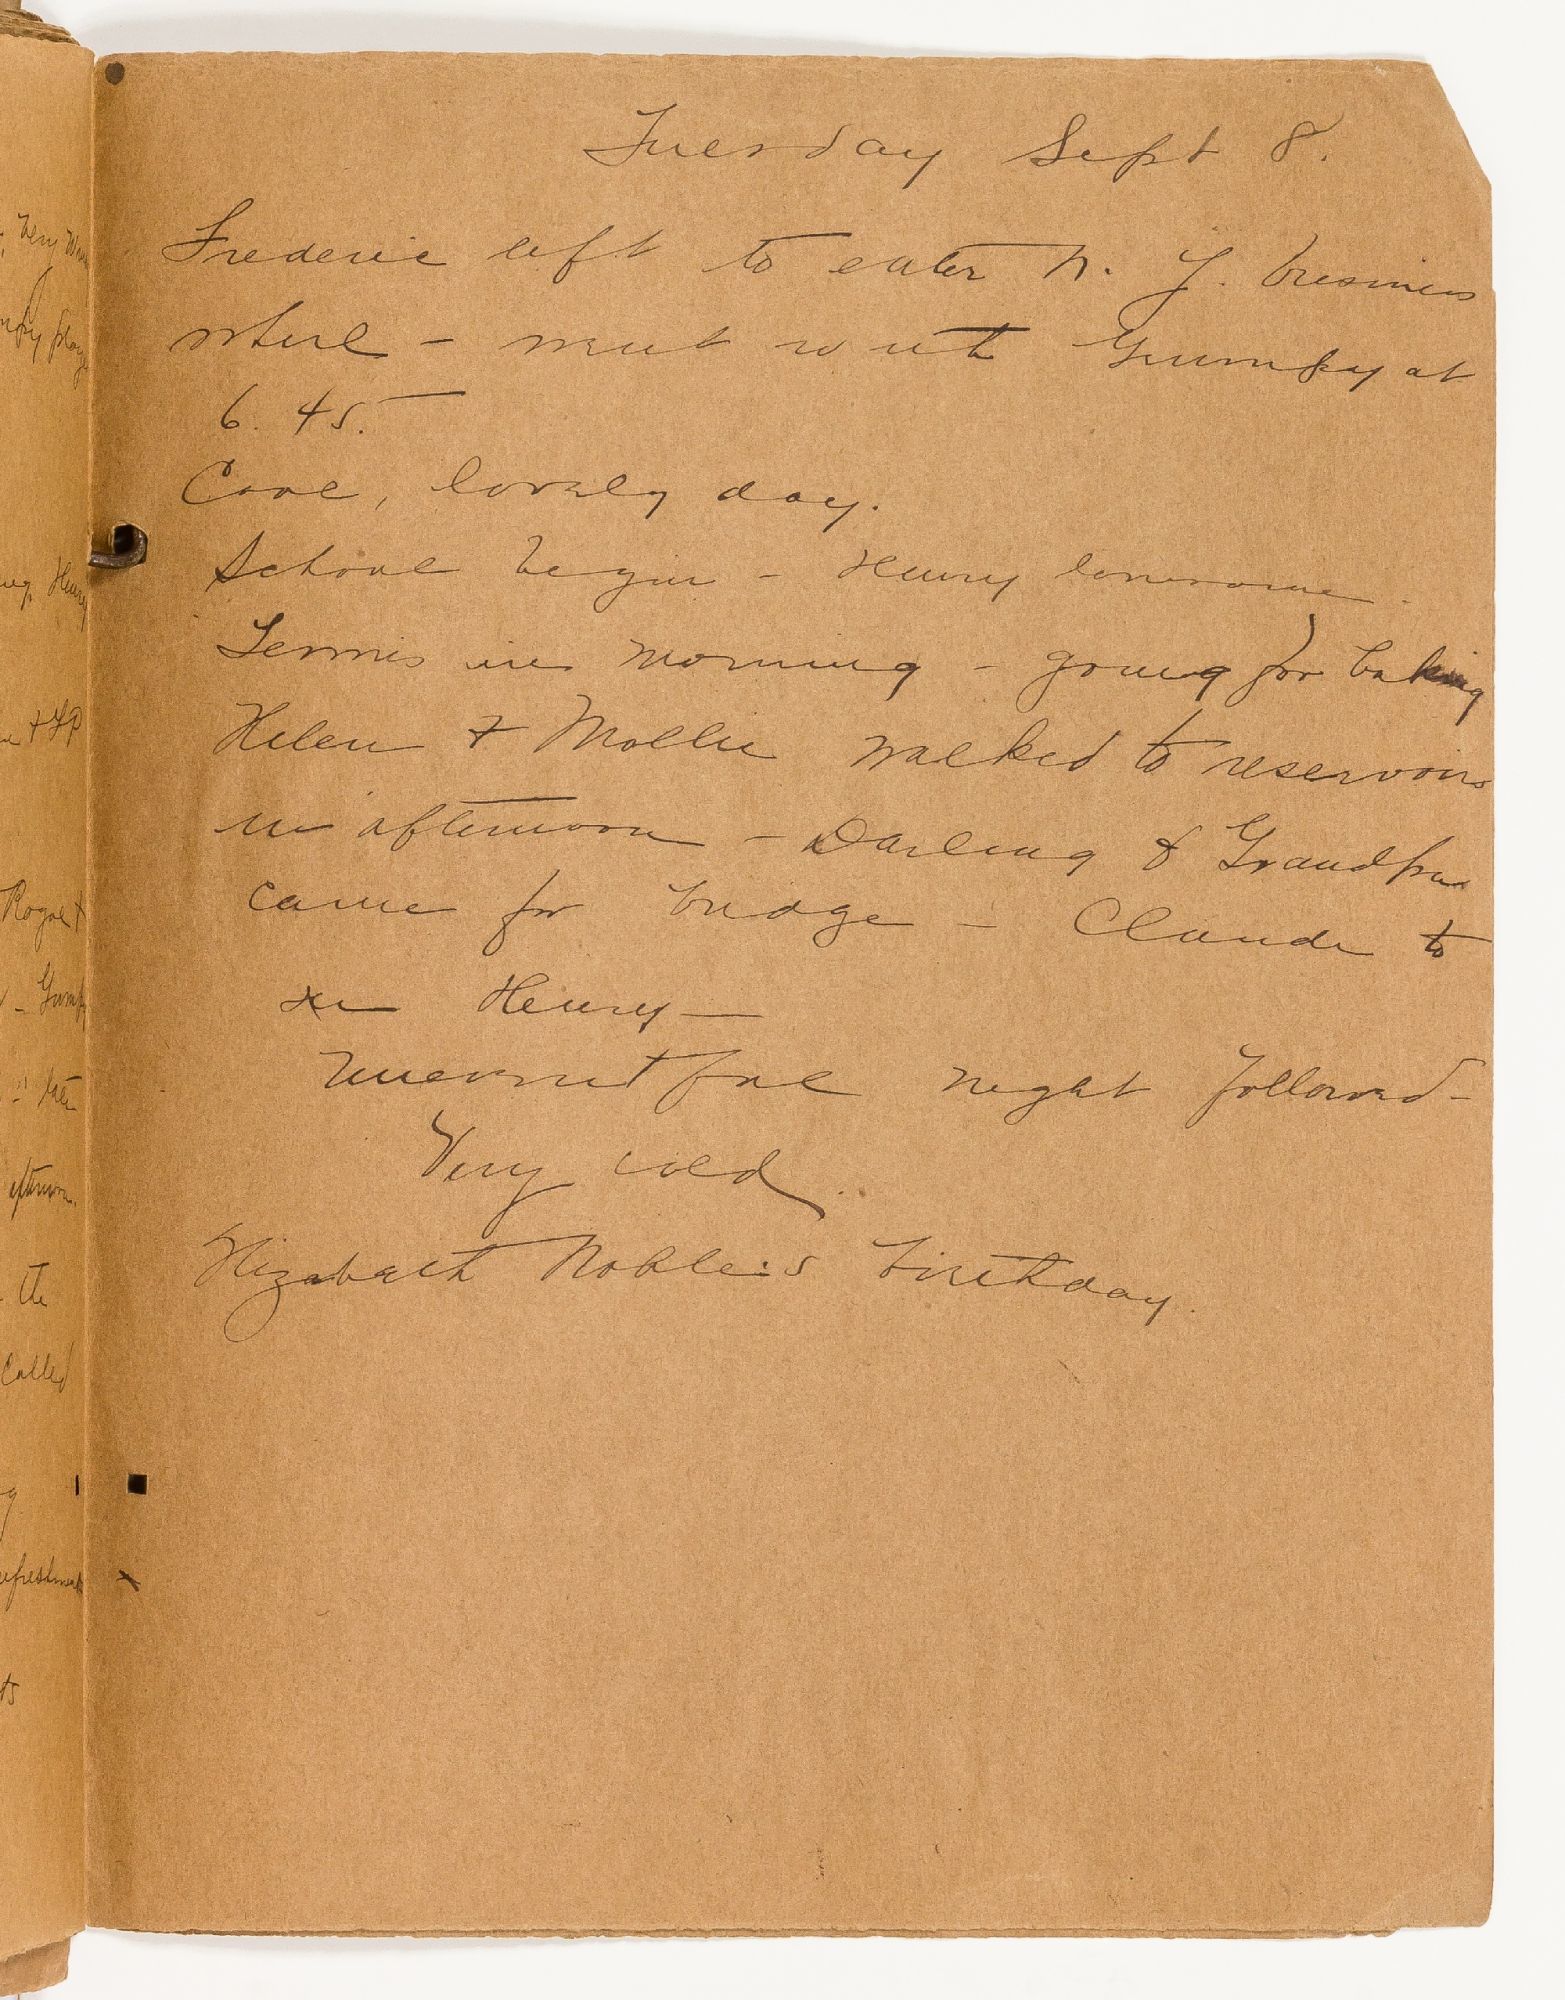 Tuesday Sept 8.
Frederic left to enter N. Y. business
whirl – went with Gumpy at
6.45.
Cool, lovely day.
School begun – Henry lonesome.
Tennis in morning – going for baking
Helen & Mollie walked to reservoir
in afternoon – Darling & Grandpa
came for bridge – Claude to
see Henry –
Uneventful night followed –
Very cold.
Elizabeth Noble's birthday.
Very
Henry
& FP
Royal &
afternoon.
the
called
refreshments